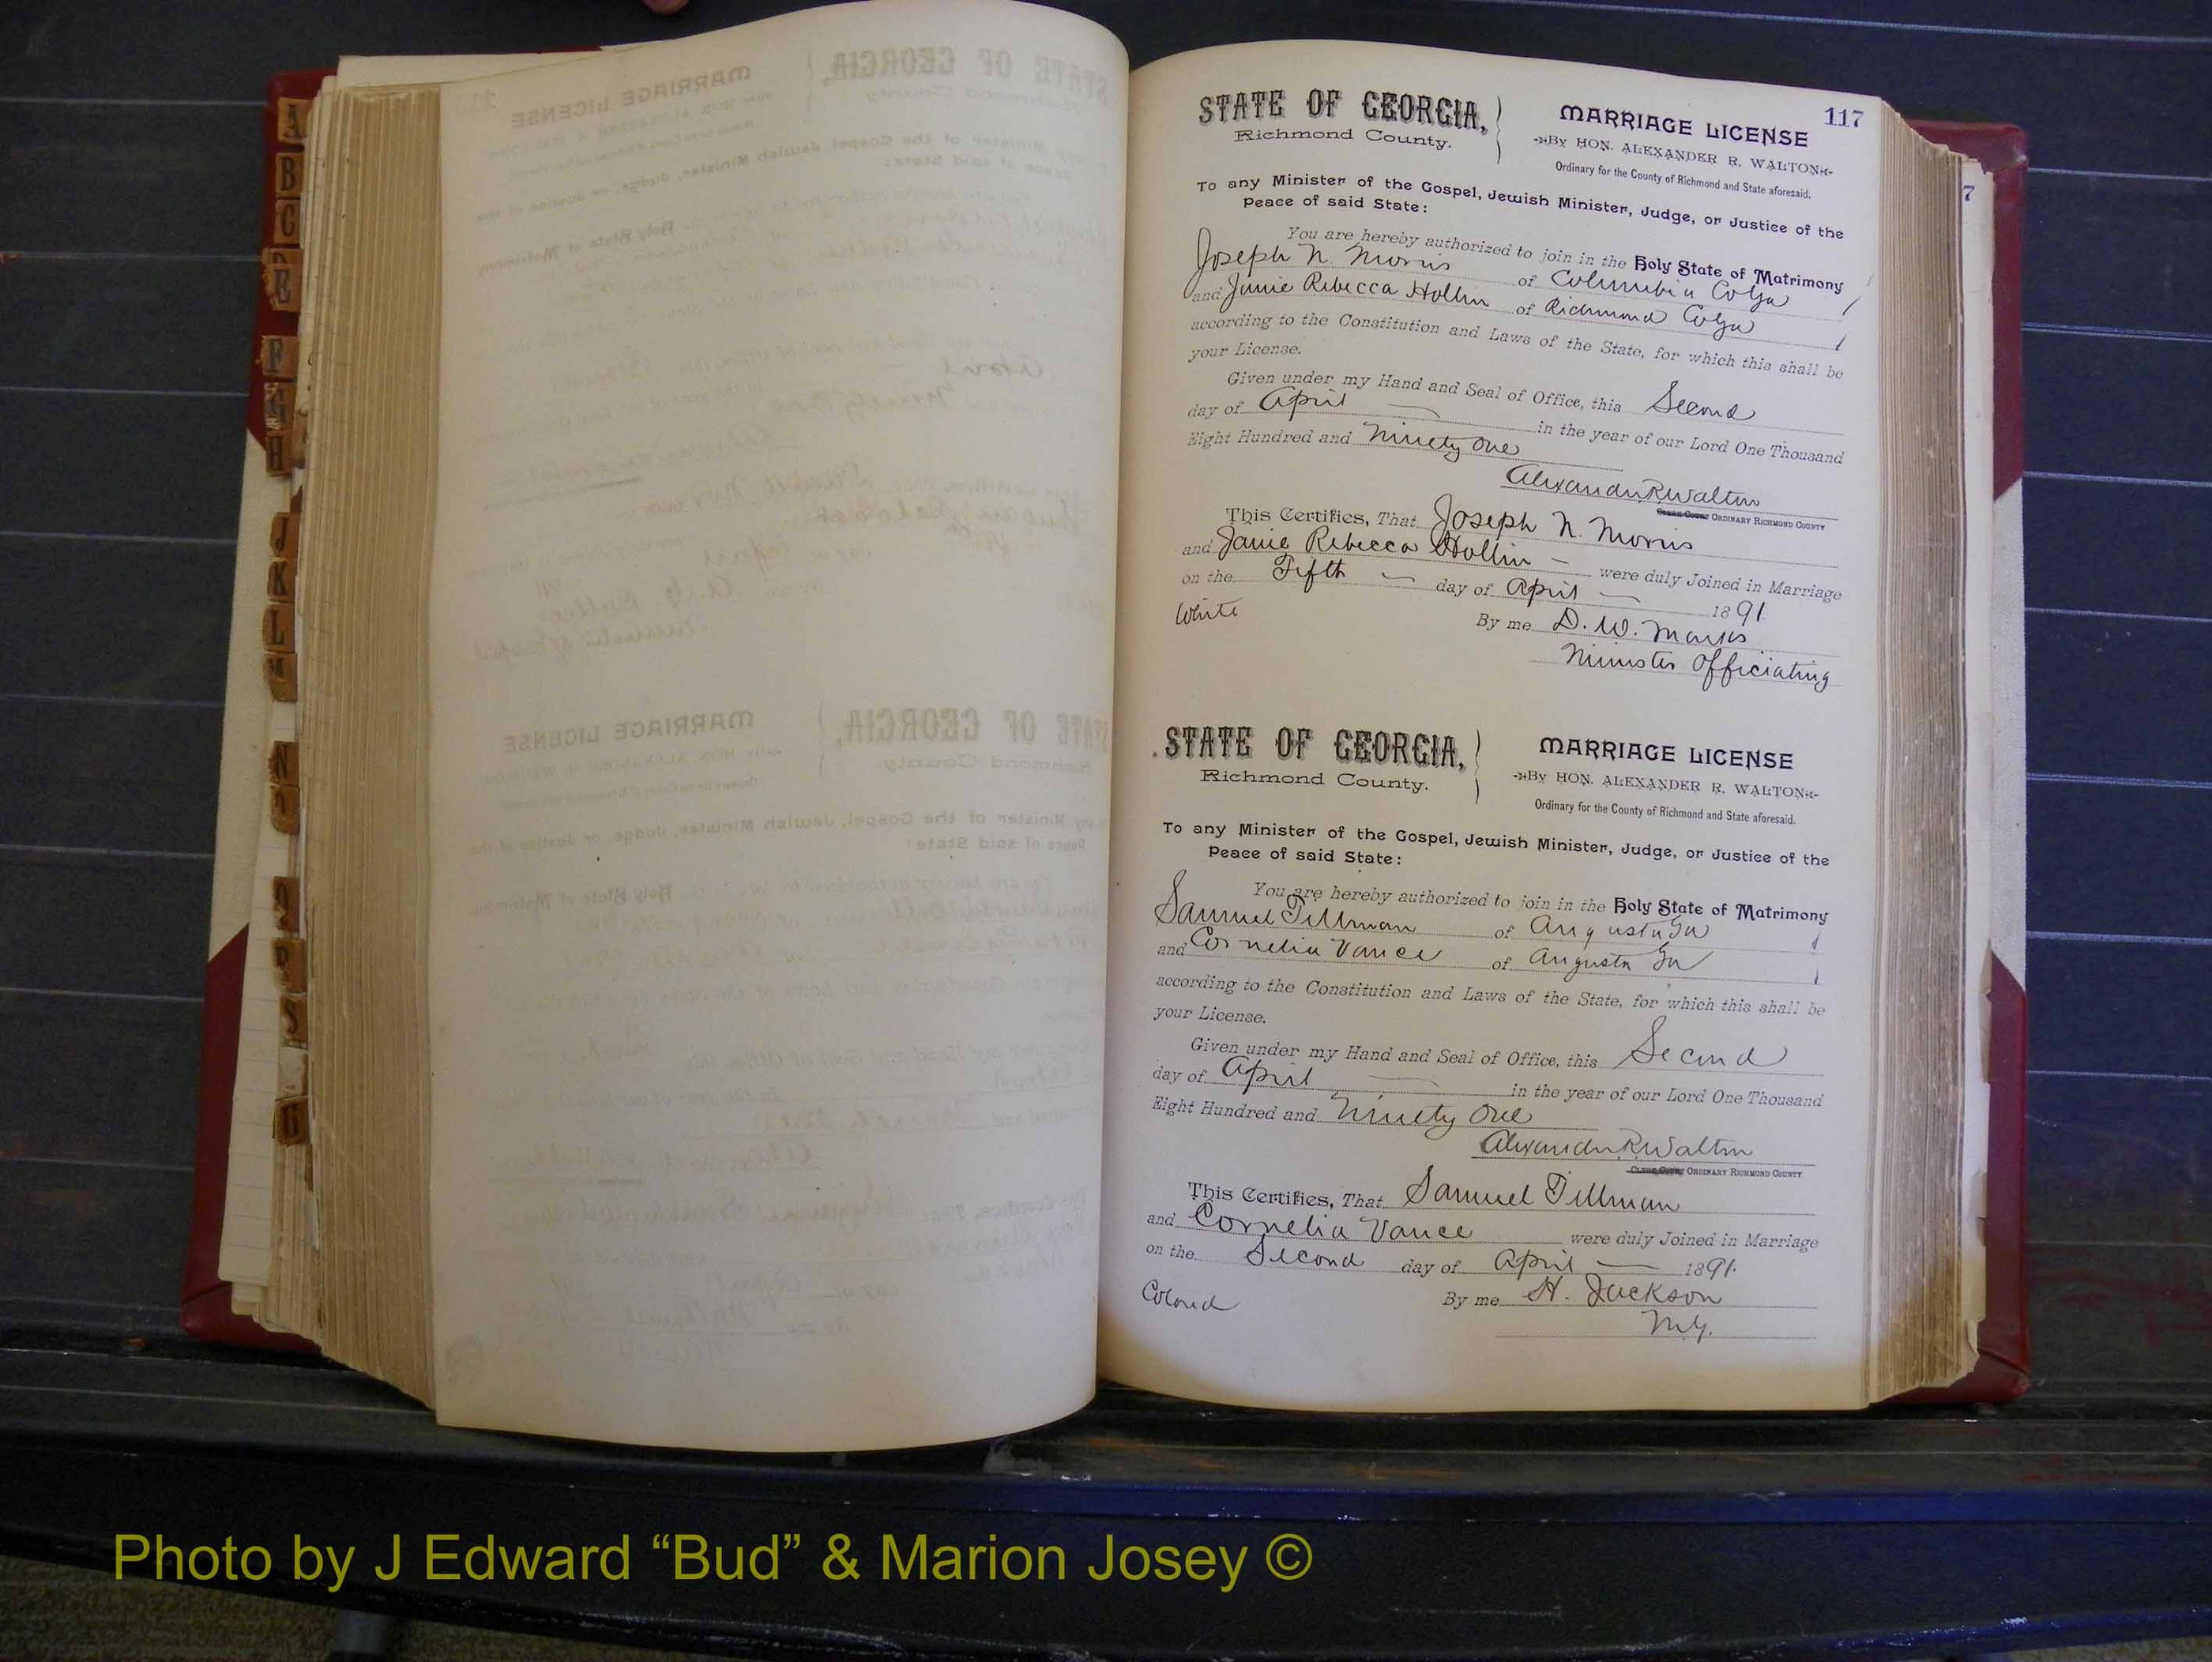 A
B
C
E
F
G
H
J
K
L
M
N
O
R
S
117
7
STATE OF GEORGIA,
Richmond County.
MARRIAGE LICENSE
By HON. ALEXANDER R. WALTON
Ordinary for the County of Richmond and State aforesaid.
To any Minister of the Gospel, Jewish Minister, Judge, or Justice of the
Peace of said State:
You are hereby authorized to join in the Holy State of Matrimony
Joseph N. Morris of Columbia Co Ga
and Janie Rebecca Hollin of Richmond Co Ga
according to the Constitution and Laws of the State, for which this shall be
your License.
Given under my Hand and Seal of Office, this Second
day of April in the year of our Lord One Thousand
Eight Hundred and Ninety One
Alexander R Walton
ORDINARY RICHMOND COUNTY
This Certifies, That Joseph N. Morris
and Janie Rebecca Hollin were duly Joined in Marriage
on the Fifth day of April 1891
White By me D. W. Marks
Minister Officiating
STATE OF GEORGIA,
Richmond County.
MARRIAGE LICENSE
By HON. ALEXANDER R. WALTON
Ordinary for the County of Richmond and State aforesaid.
To any Minister of the Gospel, Jewish Minister, Judge, or Justice of the
Peace of said State:
You are hereby authorized to join in the Holy State of Matrimony
Samuel Tillman of Augusta Ga
and Cornelia Vance of Augusta Ga
according to the Constitution and Laws of the State, for which this shall be
your License.
Given under my Hand and Seal of Office, this Second
day of April in the year of our Lord One Thousand
Eight Hundred and Ninety One
Alexander R Walton
ORDINARY RICHMOND COUNTY
This Certifies, That Samuel Tillman
and Cornelia Vance were duly Joined in Marriage
on the Second day of April 1891.
Colored By me H. Jackson
M.G.
Photo by J Edward “Bud” & Marion Josey ©